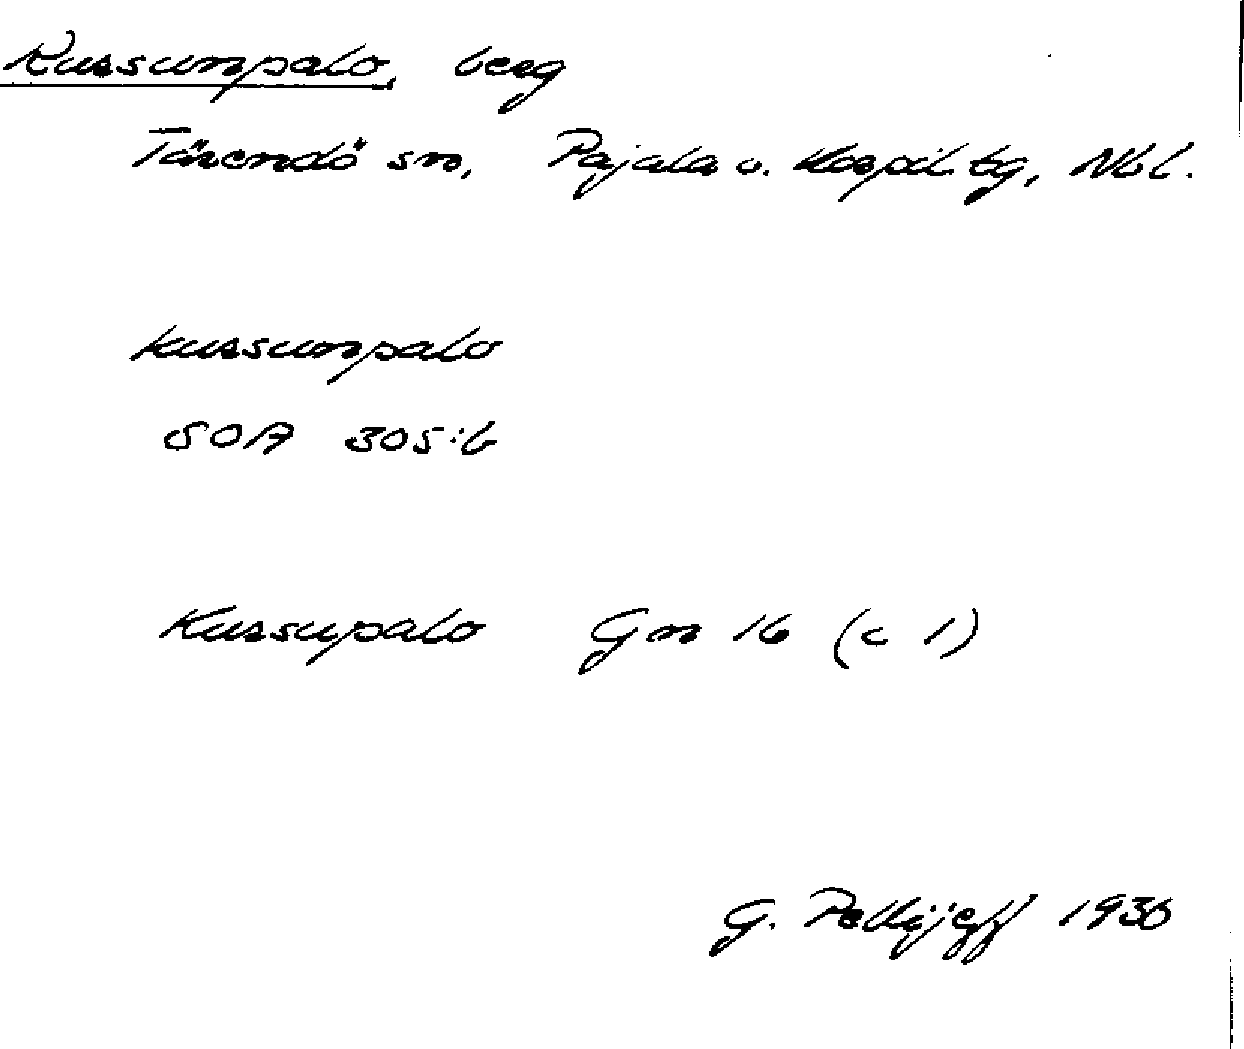 Kussunpalo, berg
Tärendö sn, Pajala o. Korpil. tg, Nbl.
kussunpalo
SOA 305:6
Kussupalo Gn 16 (c 1)
G. Pellijeff 1936